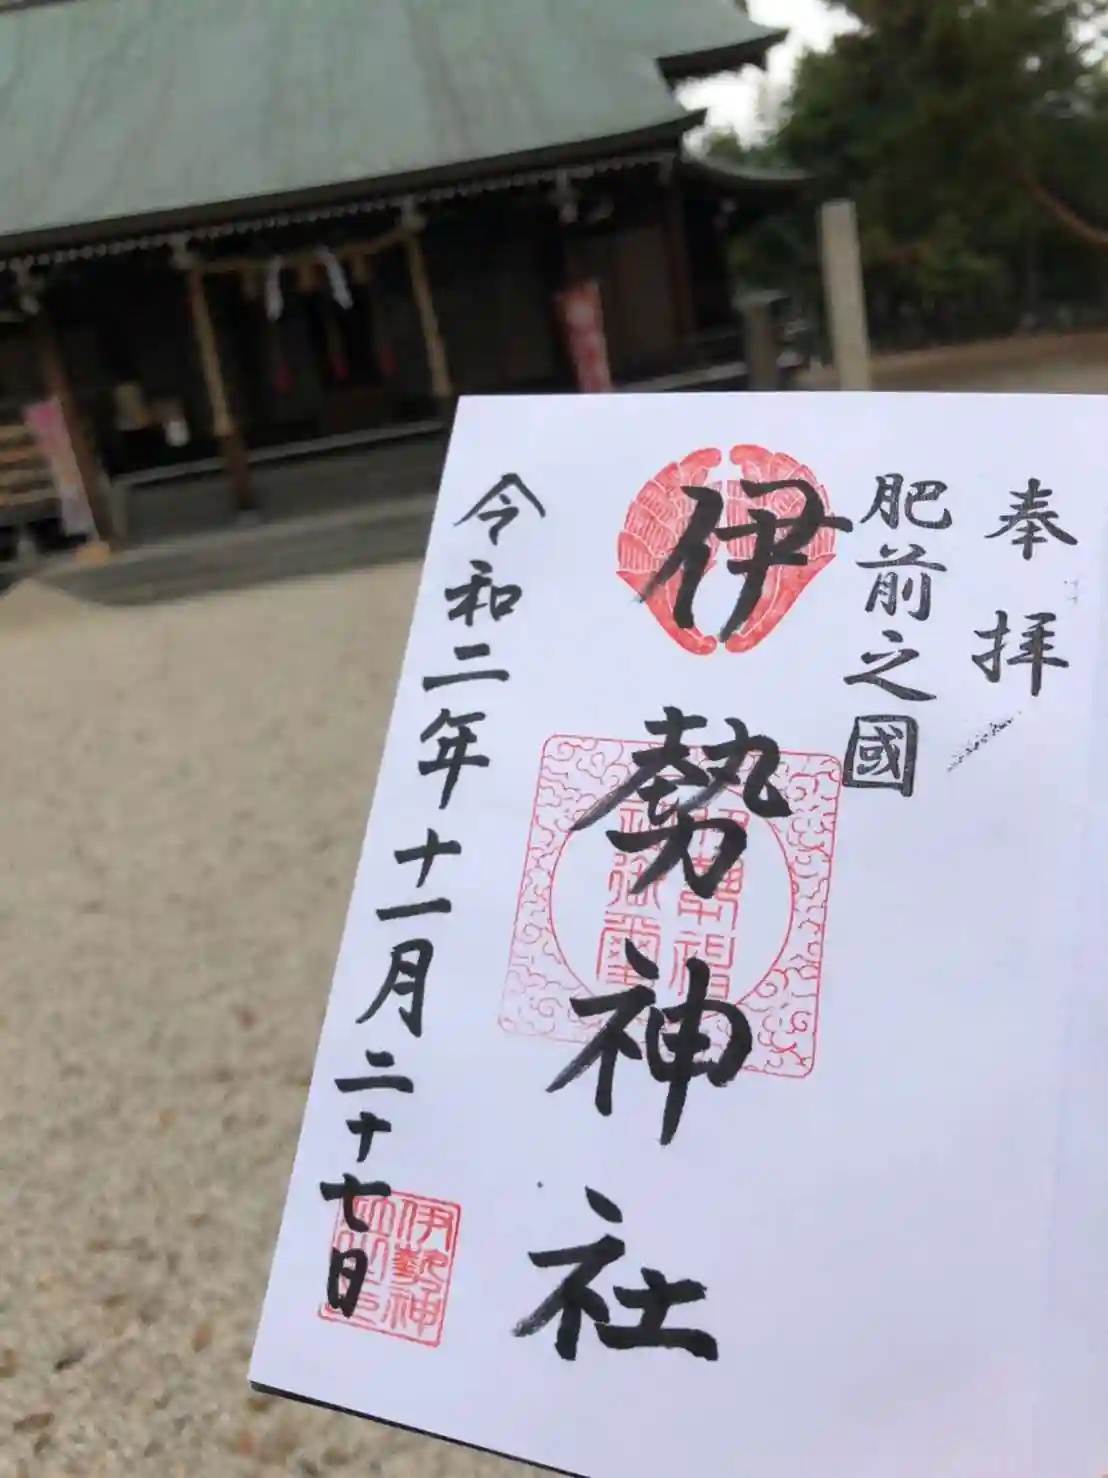 奉拝
肥前之國
伊勢神社
令和二年十一月二十七日
伊勢神